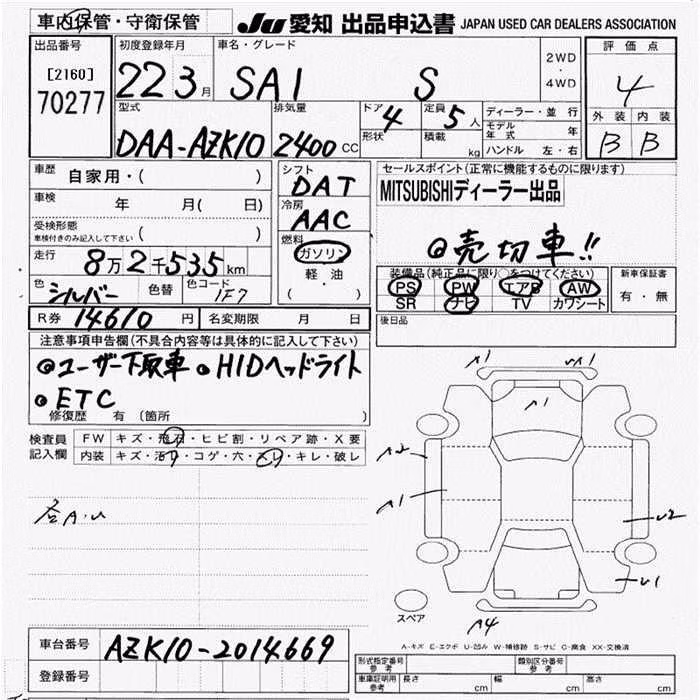 車内保管・守衛保管
JU 愛知 出品申込書 JAPAN USED CAR DEALERS ASSOCIATION
出品番号
[2160]
70277
初度登録年月
22 3月
車名・グレード
SAI S
2WD
・
4WD
評価点
4
外装 内装
B B
型式
DAA-AZK10
排気量
2400 CC
ドア 4
形状
定員 5 人
積載 kg
ディーラー・並行
モデル年式 年
ハンドル 左・右
車歴 自家用・( )
車検 年 月( 日)
受検形態
車検付きのみ記入して下さい ( )
走行 8万2千535km
色 シルバー 色替 色コード 1F7
シフト
DAT
冷房
AAC
燃料
ガソリン
軽油
( ・ )
セールスポイント(正常に機能するものに限ります)
MITSUBISHIディーラー出品
◎売切車!!
装備品(純正品に限り○をつけてください)
PS PW エアB AW
SR ナビ TV カワシート
新車保証書
有・無
R券 14610円 名変期限 月 日
後日品
注意事項申告欄(不具合内容等は具体的に記入して下さい)
◎ユーザー下取車 ◎HIDヘッドライト
◎ETC
修復歴 有 (箇所
検査員
記入欄
FW キズ・飛石・ヒビ割・リペア跡・X要
内装 キズ・汚レ・コゲ・穴・スレ・キレ・破レ
各A・U
A1
A1
A2
A1
U2
U1
A4
スペア
A-キズ E-エクボ U-凹み W-補修跡 S-サビ C-腐食 XX-交換済
車台番号 AZK10-2014669
登録番号
形式指定番号
参考
類別区分番号
参考
車庫証明用
参考
長さ cm 幅 cm 高さ cm